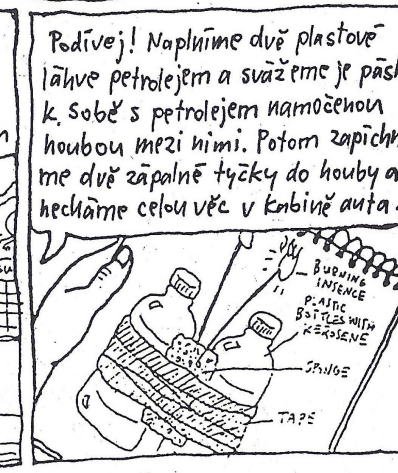 Podívej! Naplníme dvě plastové
láhve petrolejem a svážeme je pásk
k sobě s petrolejem namočenou
houbou mezi nimi. Potom zapíchn
me dvě zápalné tyčky do houby a
necháme celou věc v kabině auta.
BURNING
INSENCE
PLASTIC
BOTTLES WITH
KEROSENE
SPONGE
TAPE